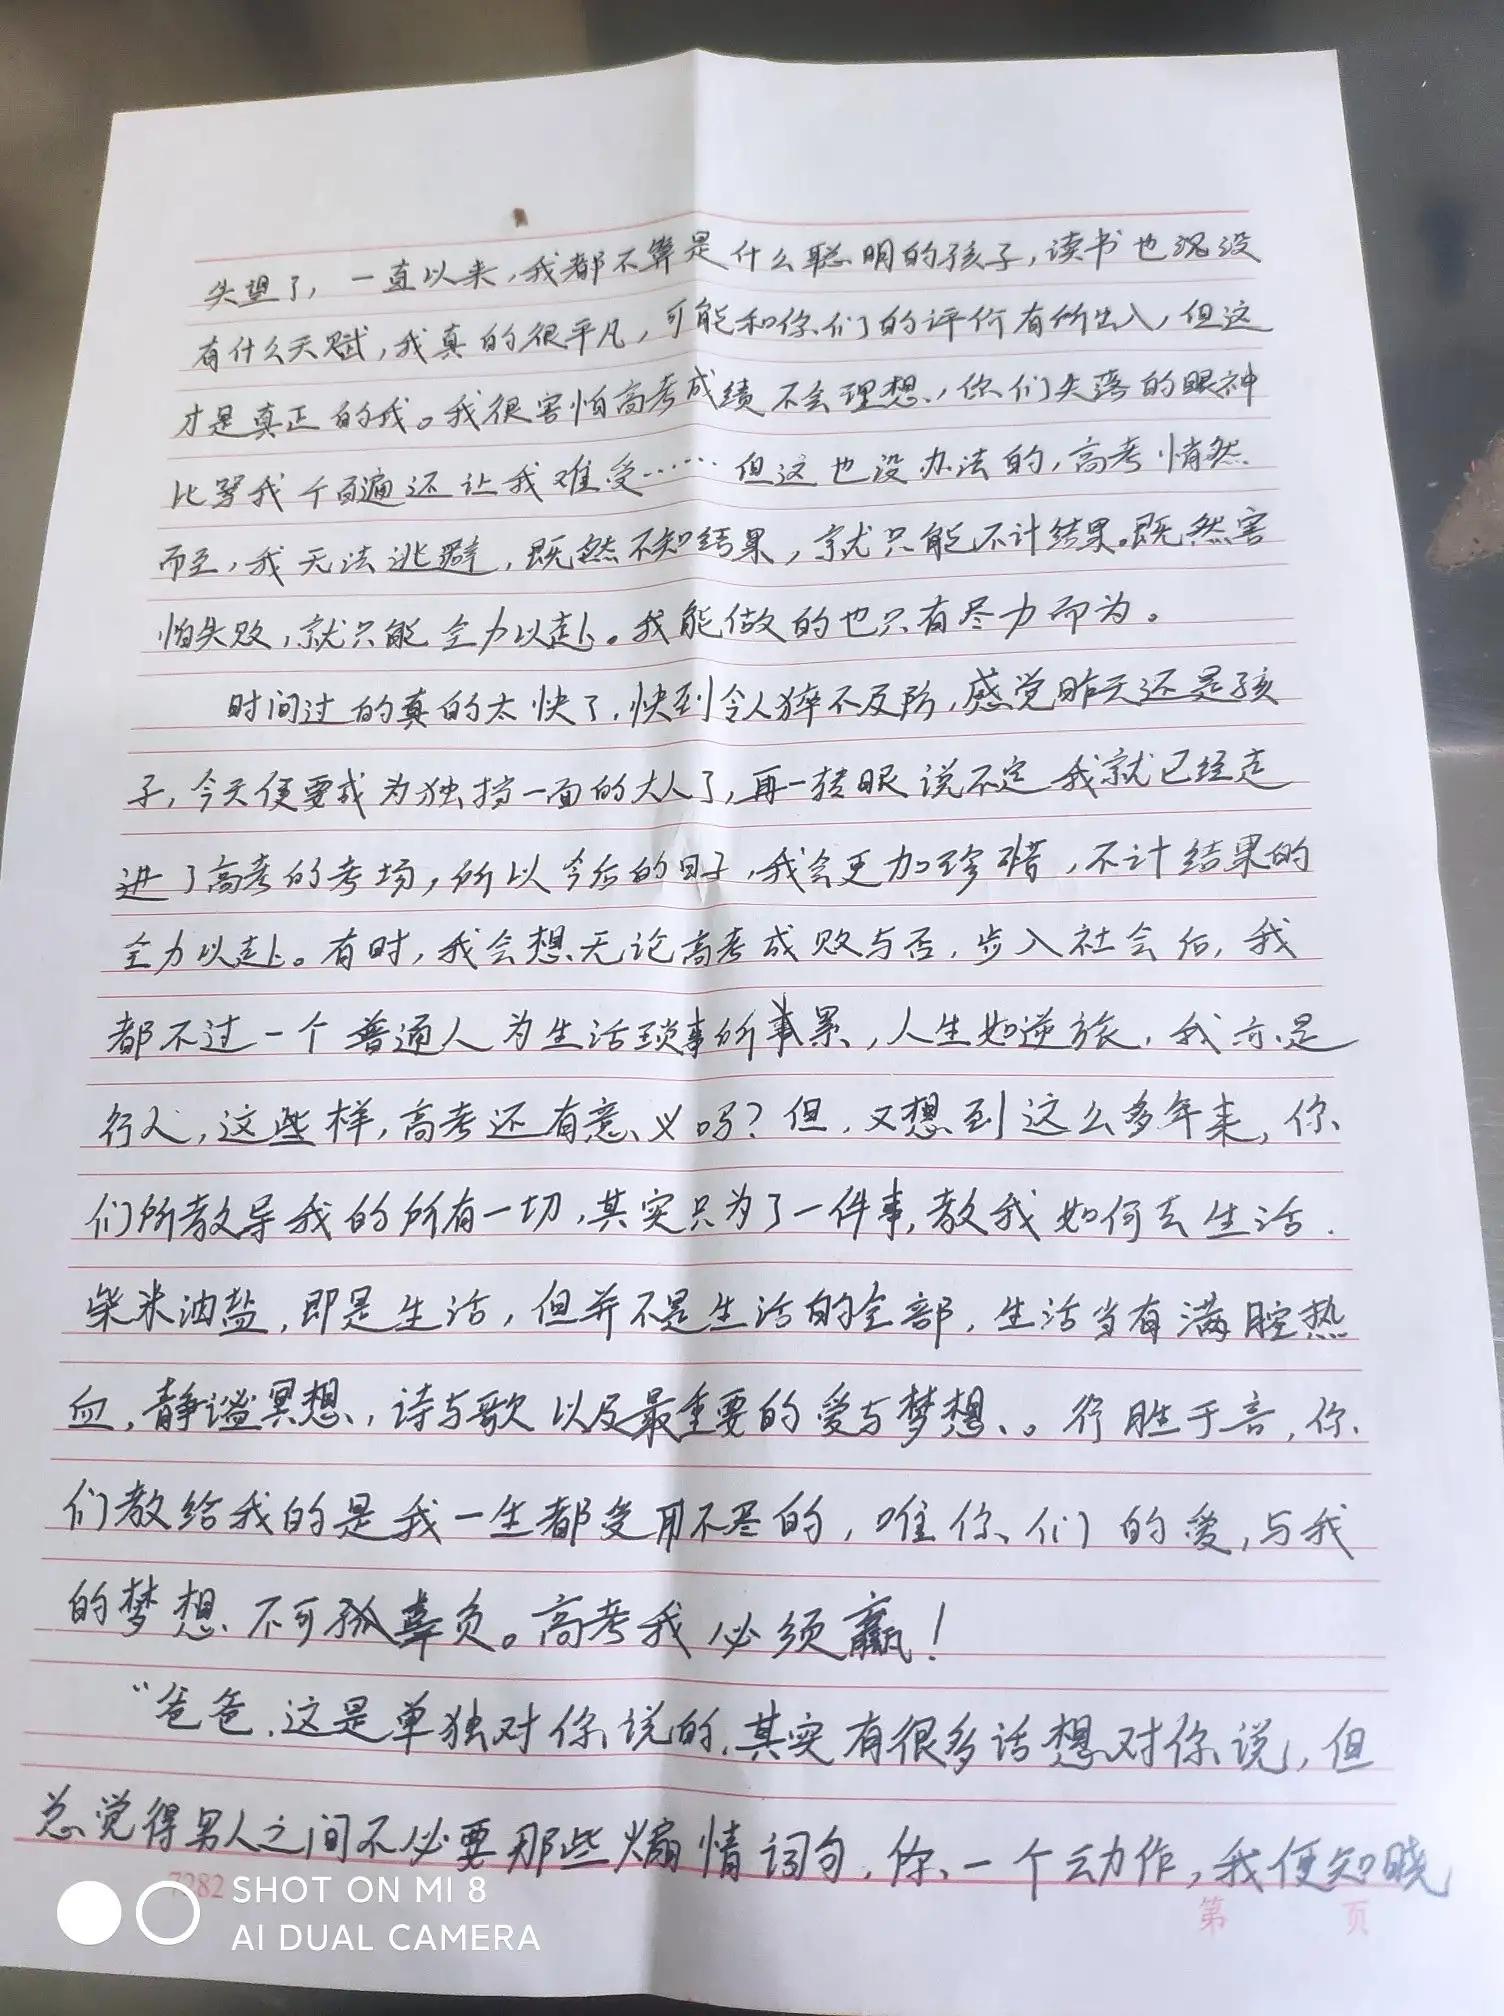 失望了，一直以来，我都不算是什么聪明的孩子，读书也说没
有什么天赋，我真的很平凡，可能和你们的评价有所出入，但这
才是真正的我。我很害怕高考成绩不会理想，你们失落的眼神
比骂我千百遍还让我难受……但这也没办法的，高考悄然
而至，我无法逃避，既然不知结果，就只能不计结果。既然害
怕失败，就只能全力以赴。我能做的也只有尽力而为。
时间过的真的太快了，快到令人猝不及防，感觉昨天还是孩
子，今天便要成为独挡一面的大人了，再一转眼说不定我就已经走
进了高考的考场，所以今后的日子，我会更加珍惜，不计结果的
全力以赴。有时，我会想无论高考成败与否，步入社会后，我
都不过一个普通人为生活琐事所累，人生如逆旅，我亦是
行人，这些样，高考还有意义吗？但，又想到这么多年来，你
们所教导我的所有一切，其实只为了一件事，教我如何去生活.
柴米油盐，即是生活，但并不是生活的全部，生活当有满腔热
血，静谧冥想，诗与歌以及最重要的爱与梦想。行胜于言，你
们教给我的是我一生都受用不尽的，唯你们的爱，与我
的梦想不可辜负。高考我必须赢！
“爸爸，这是单独对你说的，其实有很多话想对你说，但
总觉得男人之间不必要那些煽情词句，你一个动作，我便知晓
7282
第 页
SHOT ON MI 8
AI DUAL CAMERA